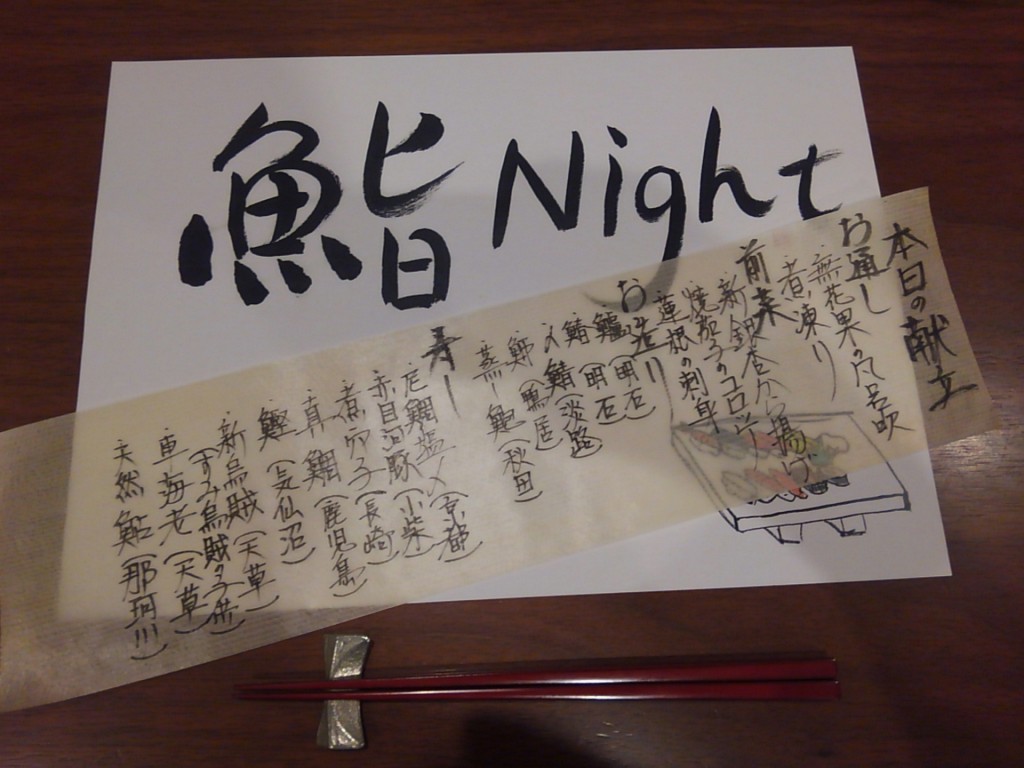 鮨 Night
本日の献立
お通し
無花果の風呂吹
煮凍り
前菜
新銀杏から揚げ
焼茄子のコロッケ
蓮根の刺身
お造り
鱸(明石)
鰆(明石)
〆鯖(淡路)
蒸し鮑(秋田)
寿し
尼鯛塩〆(京都)
赤目河豚(小柴)
煮穴子(長崎)
真鯛(鹿児島)
鰹(気仙沼)
新烏賊(天草)
(すみ烏賊の子供)
車海老(天草)
天然鮎(那珂川)